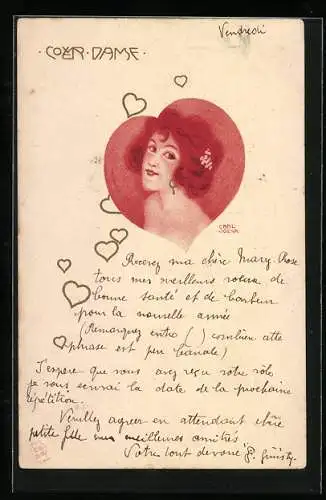 Vendredi
COEUR-DAME
CARL
JOZSA
Recevez ma chère Mary-Rose
tous mes meilleurs voeux de
bonne santé et de bonheur
pour la nouvelle année
(Remarquez entre () combien cette
phrase est peu banale)
J'espère que vous avez reçu votre rôle
je vous enverrai la date de la prochaine
répétition.
Veuillez agréer en attendant chère
petite fille mes meilleures amitiés
Votre tout dévoué